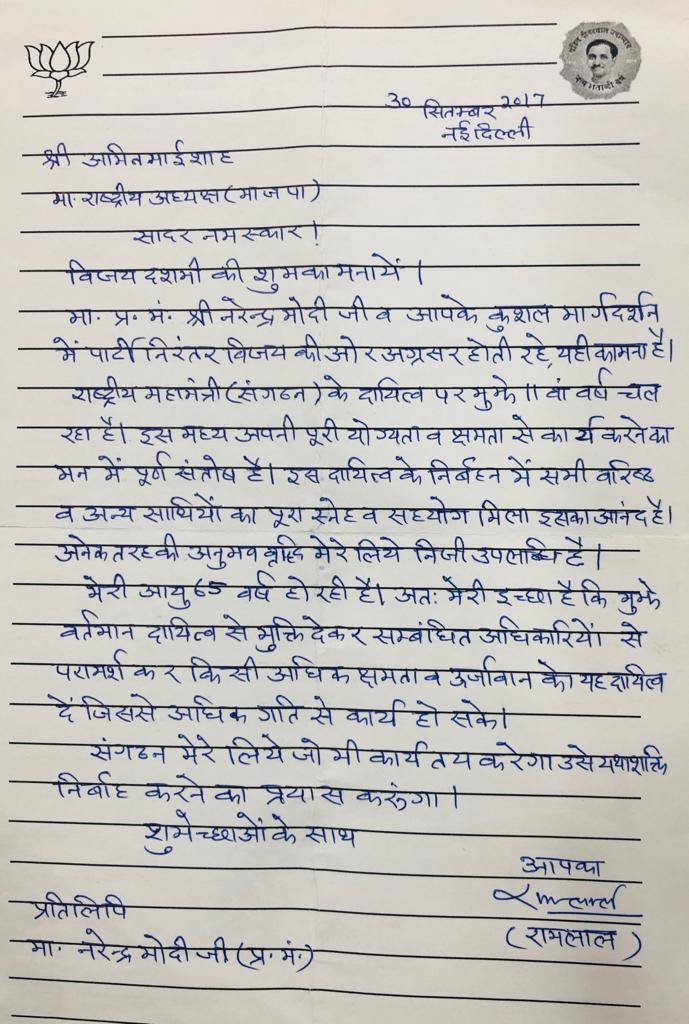 पंडित दीनदयाल उपाध्याय
जन्म शताब्दी वर्ष
30 सितम्बर 2017
नई दिल्ली
श्री अमितभाई शाह
मा. राष्ट्रीय अध्यक्ष (भाजपा)
सादर नमस्कार!
विजय दशमी की शुभकामनायें।
मा. प्र. मं. श्री नरेन्द्र मोदी जी व आपके कुशल मार्गदर्शन
में पार्टी निरंतर विजय की ओर अग्रसर होती रहे, यही कामना है।
राष्ट्रीय महामंत्री (संगठन) के दायित्व पर मुझे 11 वां वर्ष चल
रहा है। इस मध्य अपनी पूरी योग्यता व क्षमता से कार्य करने का
मन में पूर्ण संतोष है। इस दायित्व के निर्बहन में सभी वरिष्ठ
व अन्य साथियों का पूरा स्नेह व सहयोग मिला इसका आनंद है।
अनेक तरह की अनुभव वृद्धि मेरे लिये निजी उपलब्धि है।
मेरी आयु 65 वर्ष हो रही है। अतः मेरी इच्छा है कि मुझे
वर्तमान दायित्व से मुक्ति देकर सम्बंधित अधिकारियों से
परामर्श कर किसी अधिक क्षमता व ऊर्जावान को यह दायित्व
दें जिससे अधिक गति से कार्य हो सके।
संगठन मेरे लिये जो भी कार्य तय करेगा उसे यथाशक्ति
निर्बाह करने का प्रयास करूंगा।
शुभेच्छाओं के साथ
आपका
(रामलाल)
प्रतिलिपि
मा. नरेन्द्र मोदी जी (प्र. मं.)